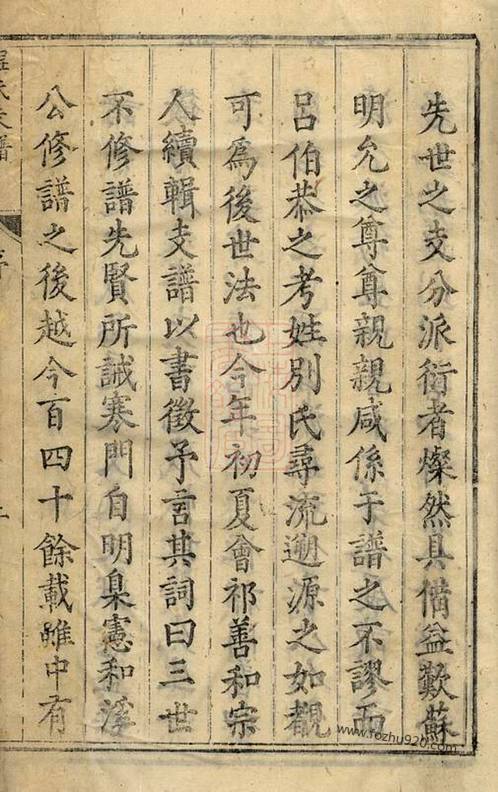 先世之支分派衍者燦然具備益歎蘇
明允之尊尊親親咸係于譜之不謬而
呂伯恭之考姓別氏尋流遡源之如觀
可爲後世法也今年初夏會祁善和宗
人續輯支譜以書徵予言其詞曰三世
不修譜先賢所誡寒門自明臬憲和溪
公修譜之後越今百四十餘載雖中有
程氏支譜
序
www.fozhu920.com